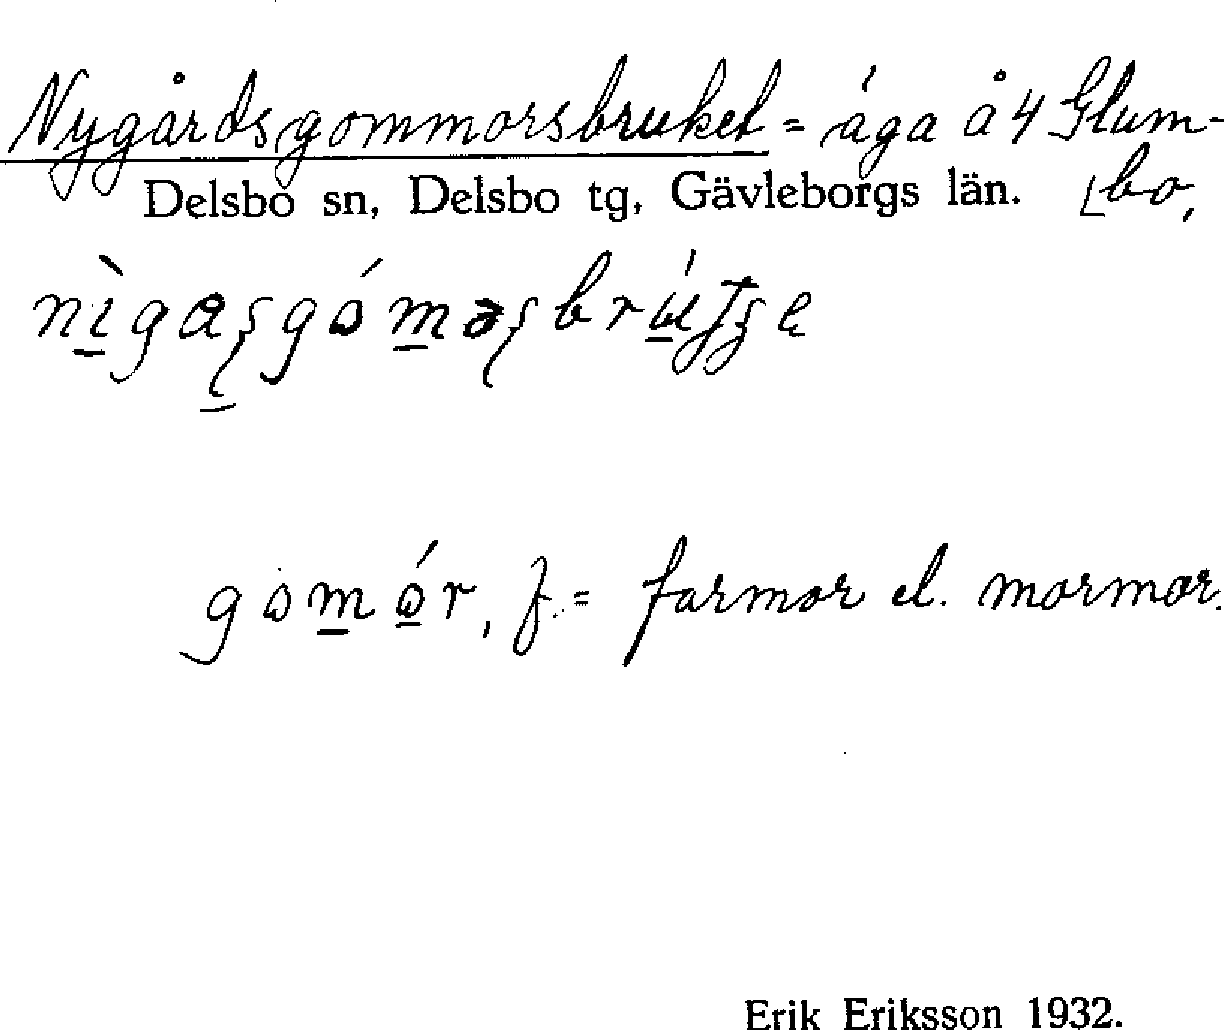 Nygårdsgommorsbruket = ága å 4 Glum-
Delsbo sn, Delsbo tg, Gävleborgs län. [bo,
gomór, f. = farmor el. mormor.
Erik Eriksson 1932.